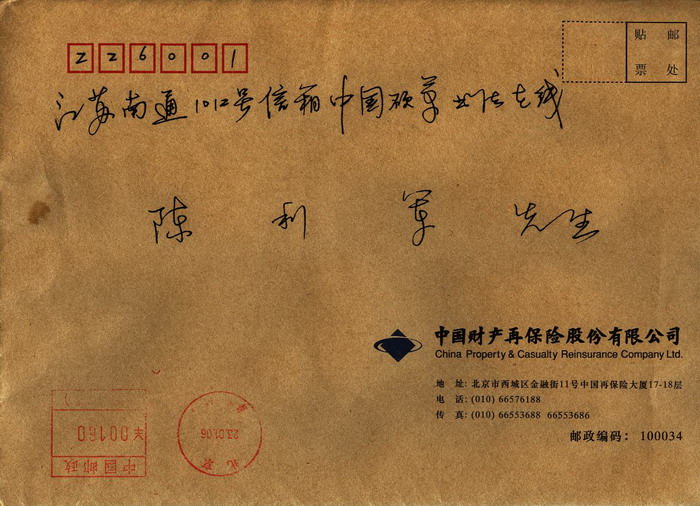 226001
贴 邮
票 处
江苏南通1012号信箱中国硕草书法在线
陈利军 先生
中国财产再保险股份有限公司
China Property & Casualty Reinsurance Company Ltd.
地 址: 北京市西城区金融街11号中国再保险大厦17-18层
电 话: (010) 66576188
传 真: (010) 66553688 66553686
邮政编码: 100034
00160
中国邮政
23.01.06
北京